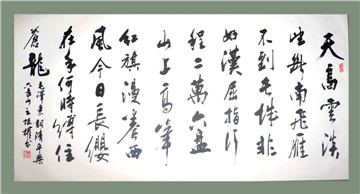 天高雲淡
望斷南飛雁
不到長城非
好漢屈指行
程二萬六盤
山上高峰
紅旗漫卷西
風今日長纓
在手何時縛住
蒼龍
毛澤東詞清平樂
六盤山